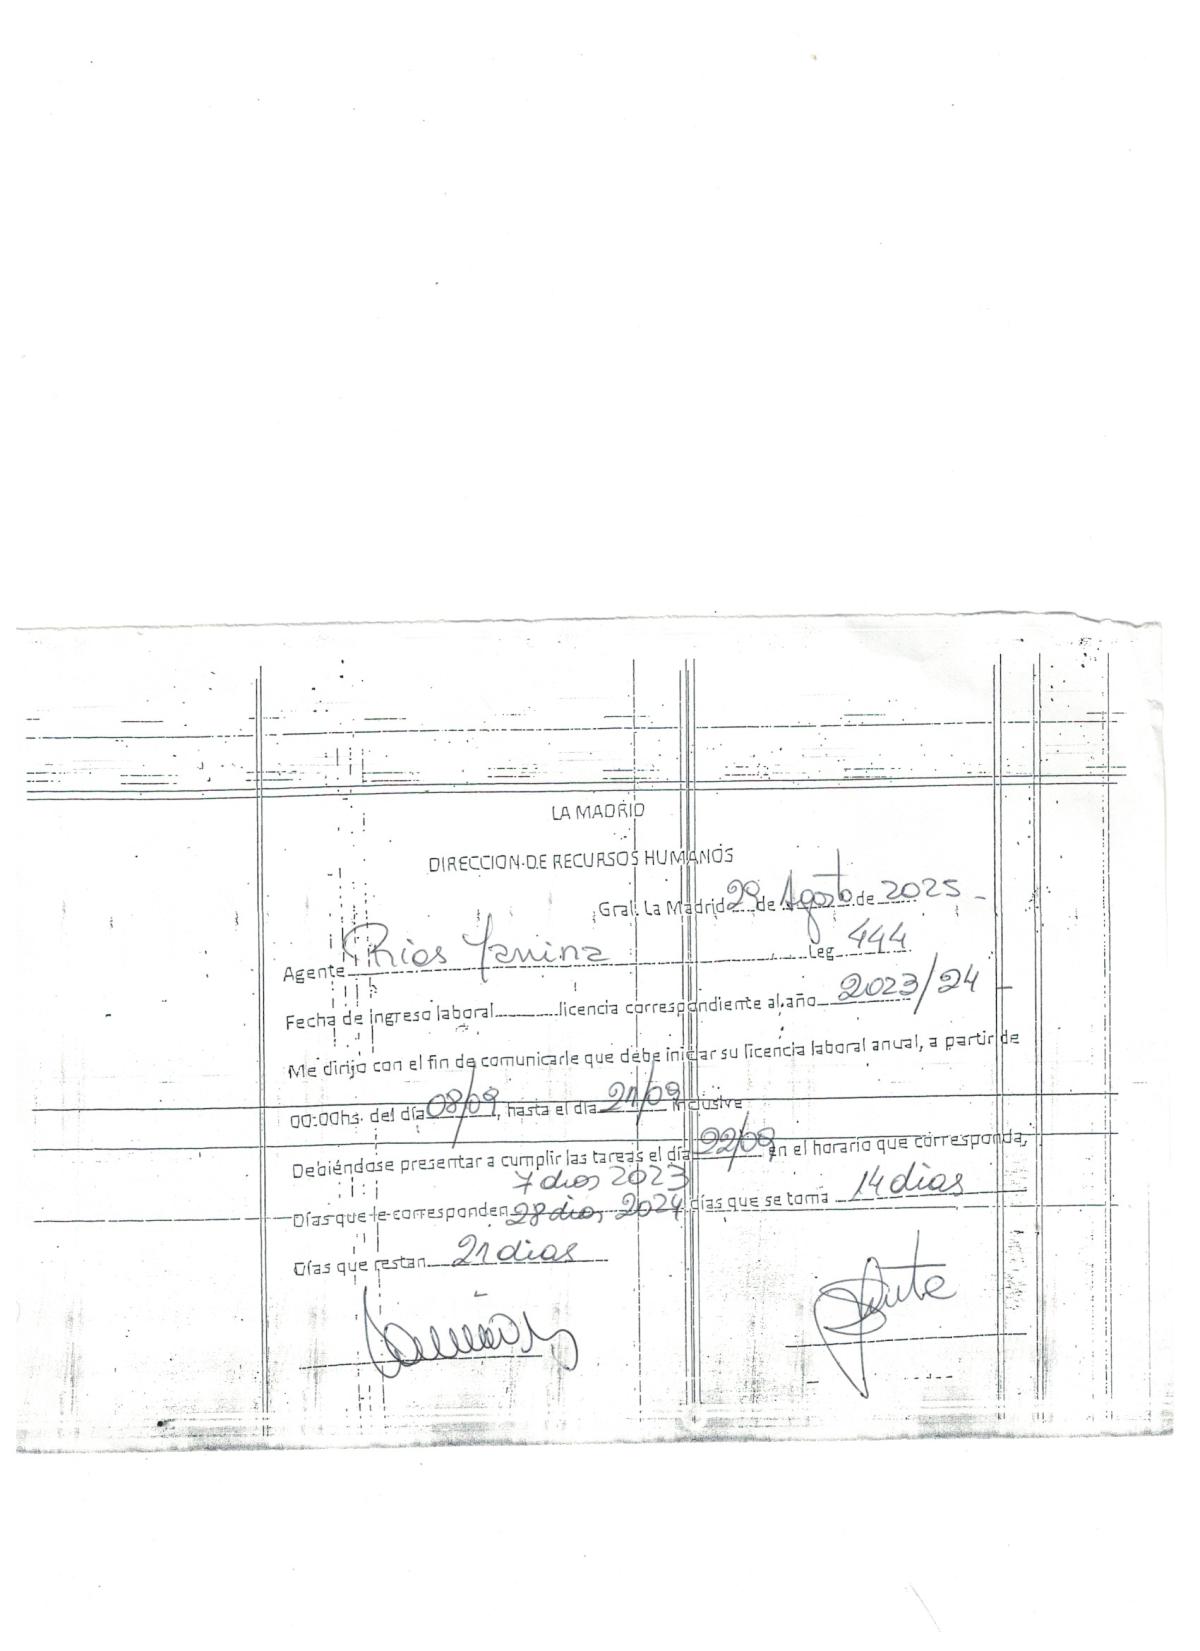 LA MADRID
DIRECCION DE RECURSOS HUMANOS
Gral. La Madrid 29 de Agosto de 2025 -
Agente Rios Yanina Leg 444
Fecha de ingreso laboral licencia correspondiente al año 2023/24
Me dirijo con el fin de comunicarle que debe iniciar su licencia laboral anual, a partir de
00:00hs. del día 08/09, hasta el día 21/09 inclusive
Debiéndose presentar a cumplir las tareas el día 22/09 en el horario que corresponda,
7 dias 2023
Días que le corresponden 28 dias 2024 días que se toma 14 dias
Días que restan 21 dias